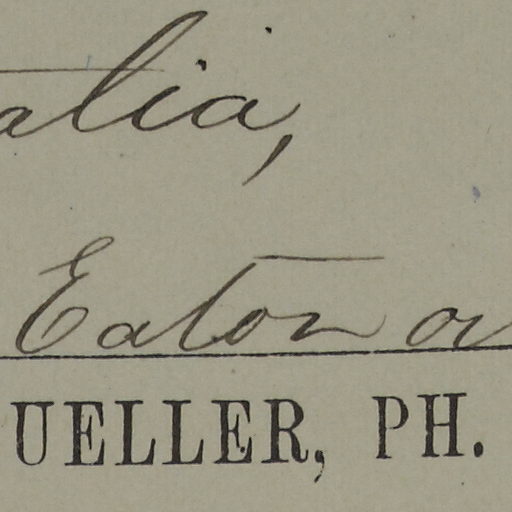 alia,
Eaton or
UELLER, PH.